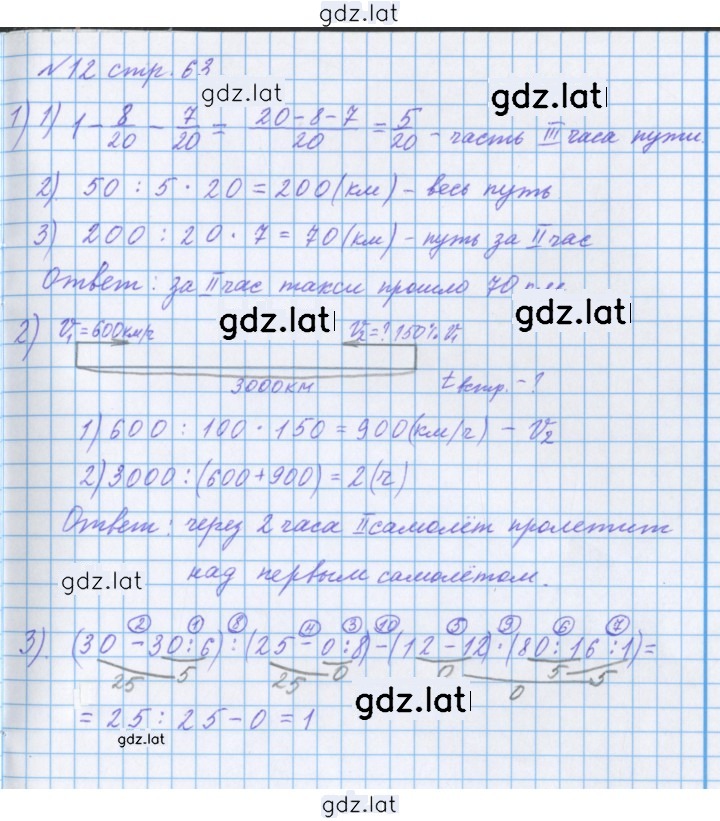 gdz.lat
№12 стр. 63
gdz.lat
gdz.lat
1) 1) 1 - 8/20 - 7/20 = (20-8-7)/20 = 5/20 - часть III часа пути.
2) 50 : 5 · 20 = 200 (км) - весь путь
3) 200 : 20 · 7 = 70 (км) - путь за II час
Ответ: за II час такси прошло 70
gdz.lat
gdz.lat
2) V₁ = 600 км/ч V₂ = ? 150% V₁
3000 км t встр. - ?
1) 600 : 100 · 150 = 900 (км/ч) - V₂
2) 3000 : (600 + 900) = 2 (ч)
Ответ: через 2 часа II самолёт пролетит
над первым самолётом.
gdz.lat
2 1 8 4 3 10 5 9 6 7
3). (30 - 30 : 6) : (25 - 0 : 8) - (12 - 12) · (80 : 16 : 1) =
25 5 25 0 0 0 5 5
gdz.lat
= 25 : 25 - 0 = 1
gdz.lat
gdz.lat